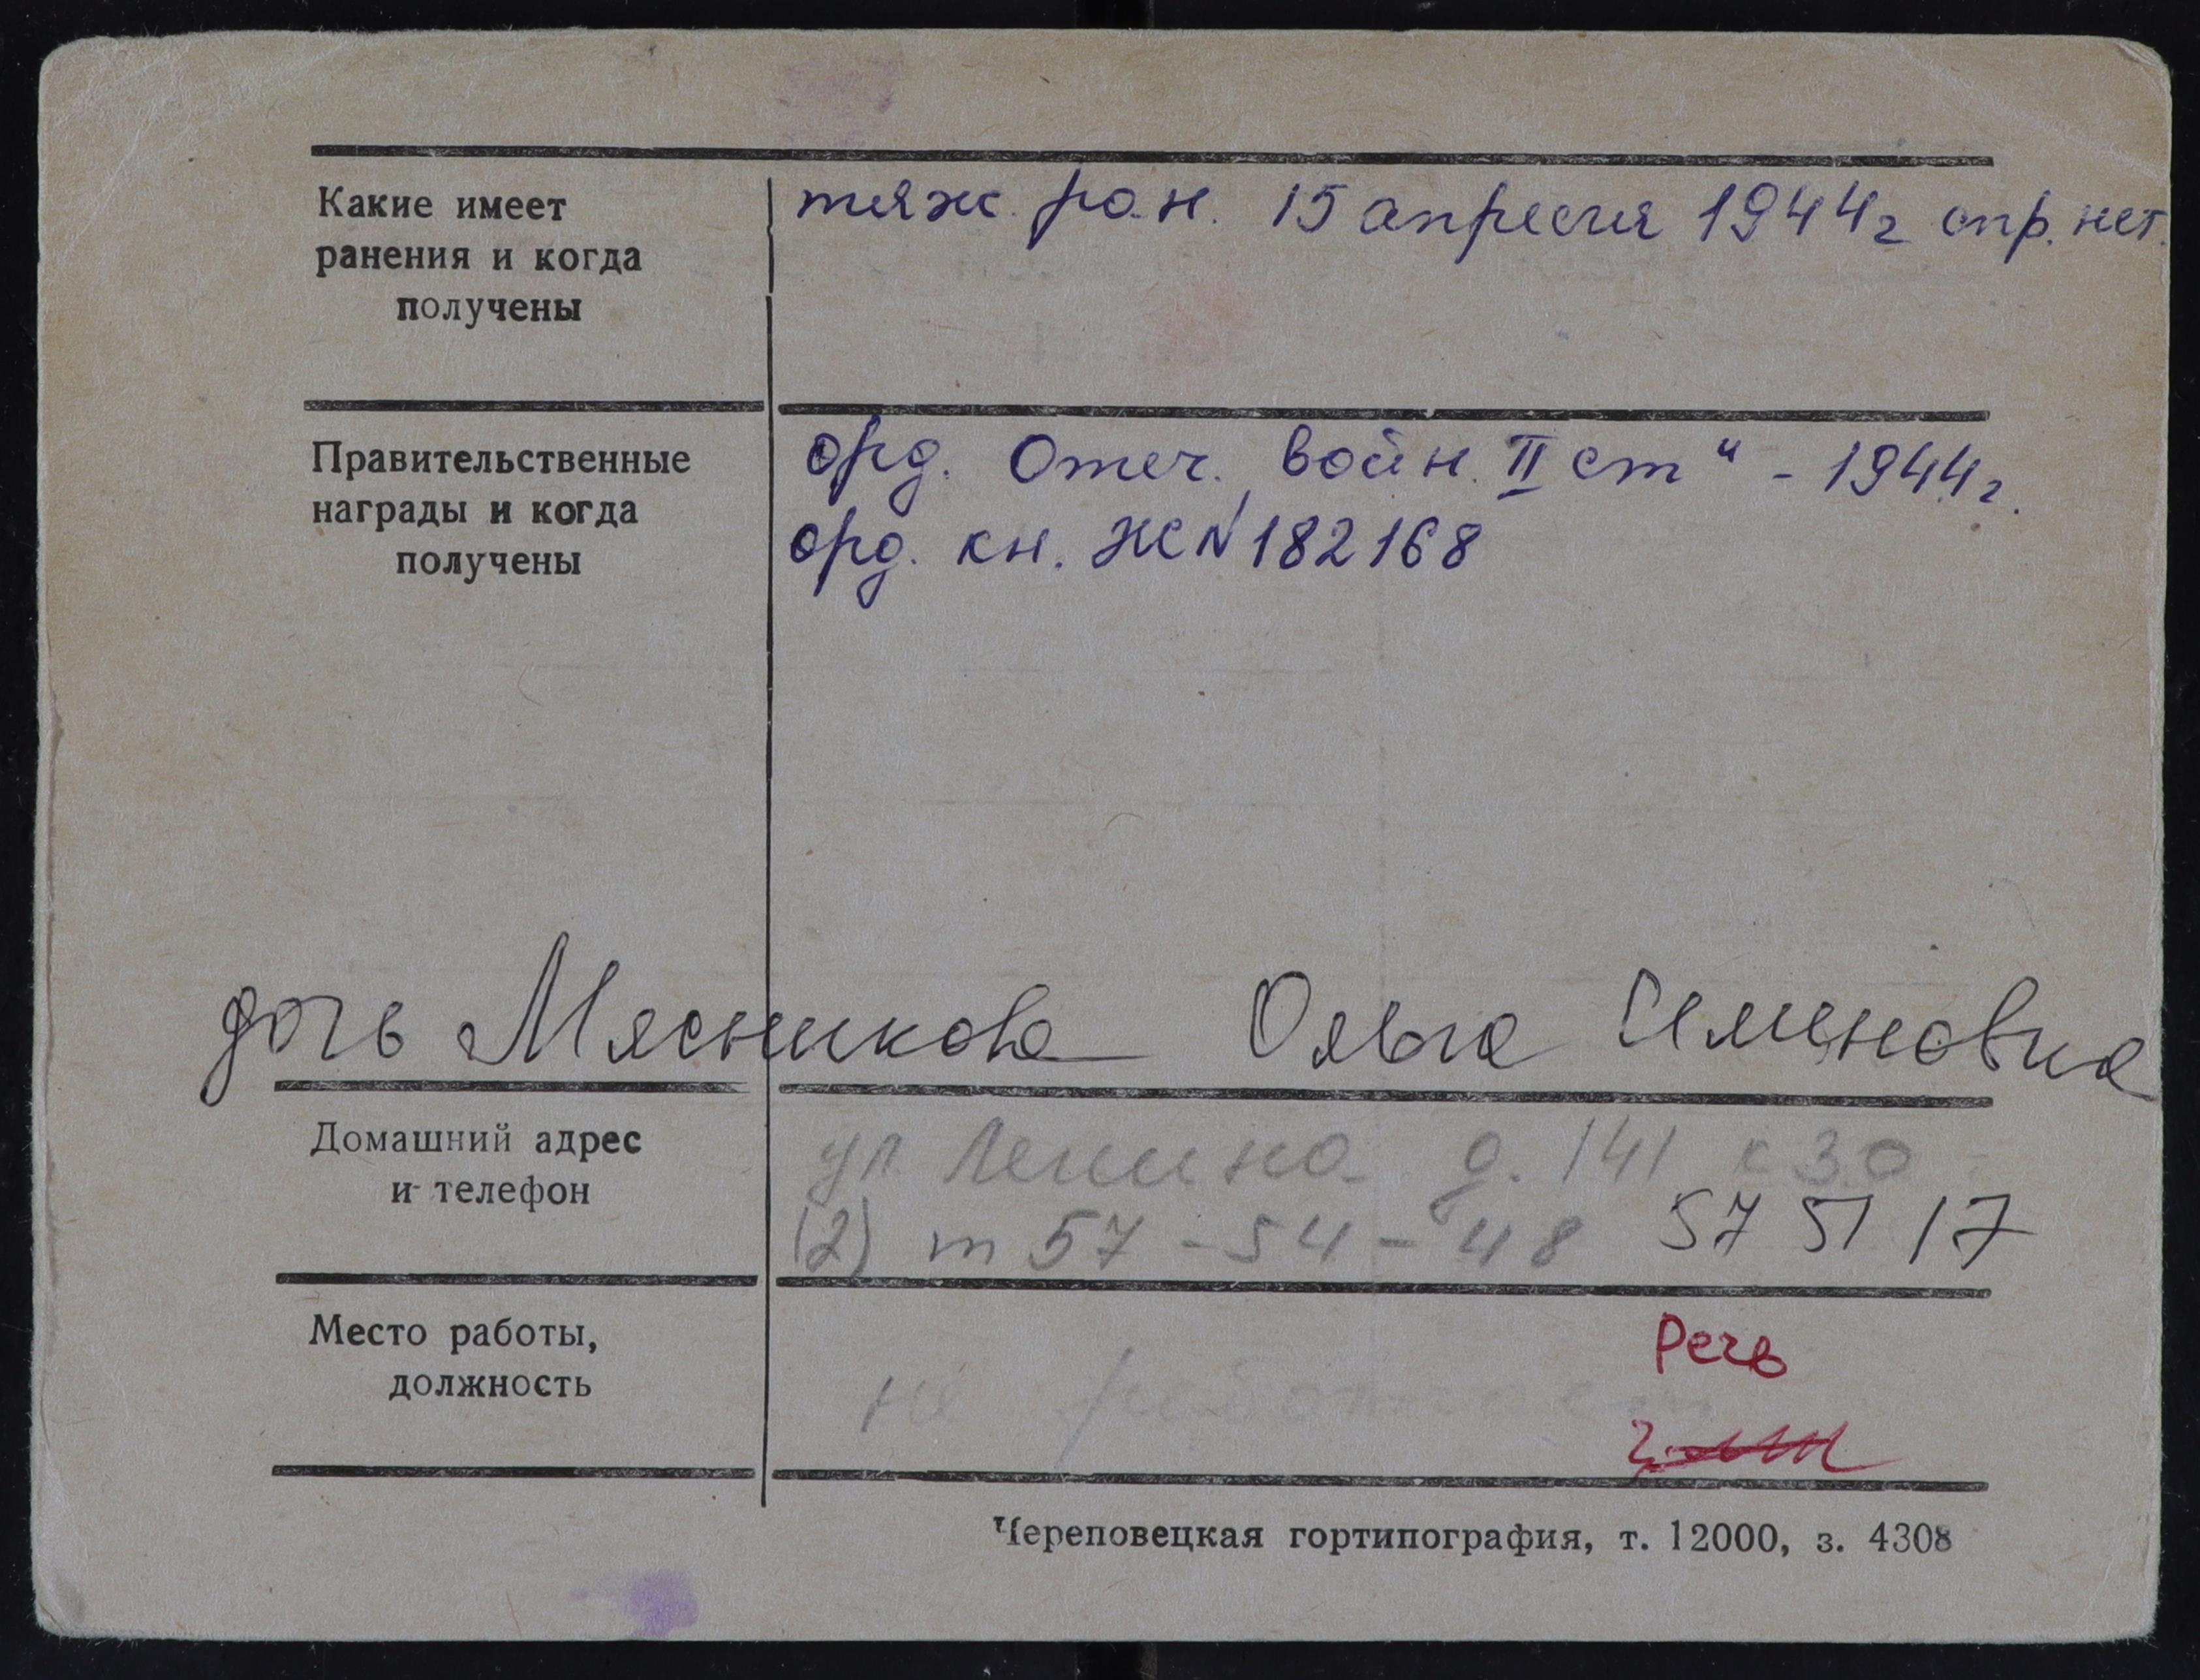 Какие имеет
ранения и когда
получены
тяж. ран. 15 апреля 1944г спр. нет.
Правительственные
награды и когда
получены
орд. Отеч. войн. II ст" - 1944г.
орд. кн. Ж№182168
дочь Мясникова Ольга Семеновна
Домашний адрес
и телефон
ул. Ленина д. 141 к 30
(2) т 57-54-48 57 51 17
Место работы,
должность
не работает
Речь
Череповецкая гортипография, т. 12000, з. 4308